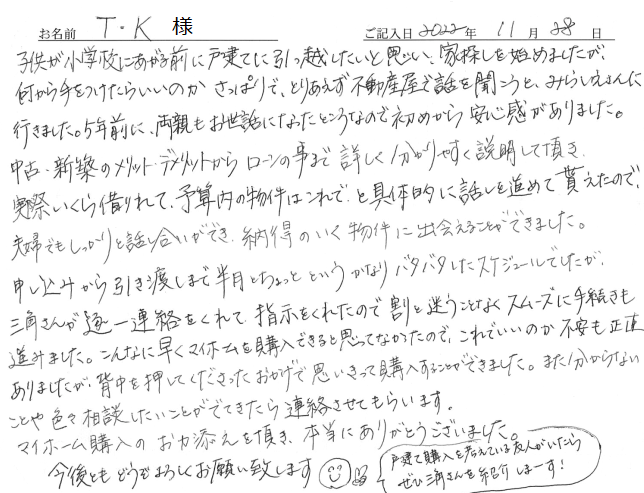 お名前 T・K 様 ご記入日 2022年 11月 28日
子供が小学校にあがる前に戸建てに引っ越したいと思い、家探しを始めましたが、
何から手をつけたらいいのか さっぱりで、とりあえず不動産屋で話を聞こうと、みらいえさんに
行きました。5年前に、両親もお世話になったところなので初めから安心感がありました。
中古・新築のメリット・デメリットから ローンの事まで 詳しく分かりやすく説明して頂き、
実際いくら借りれて、予算内の物件はこれで、と具体的に話しを進めて貰えたので、
夫婦でもしっかりと話し合いができ、納得のいく物件に出会えることができました。
申し込みから引き渡しまで半月とちょっと というかなりバタバタしたスケジュールでしたが、
三角さんが逐一連絡をくれて、指示をくれたので割と迷うことなくスムーズに手続きも
進みました。こんなに早くマイホームを購入できると思ってなかったので、これでいいのか不安も正直
ありましたが、背中を押してくださったおかげで思いきって購入することができました。また分からない
ことや色々相談したいことがでてきたら連絡させてもらいます。
マイホーム購入のお力添えを頂き、本当にありがとうございました。
今後ともどうぞよろしくお願い致します
戸建て購入を考えている友人がいたら
ぜひ三角さんを紹介しまーす!